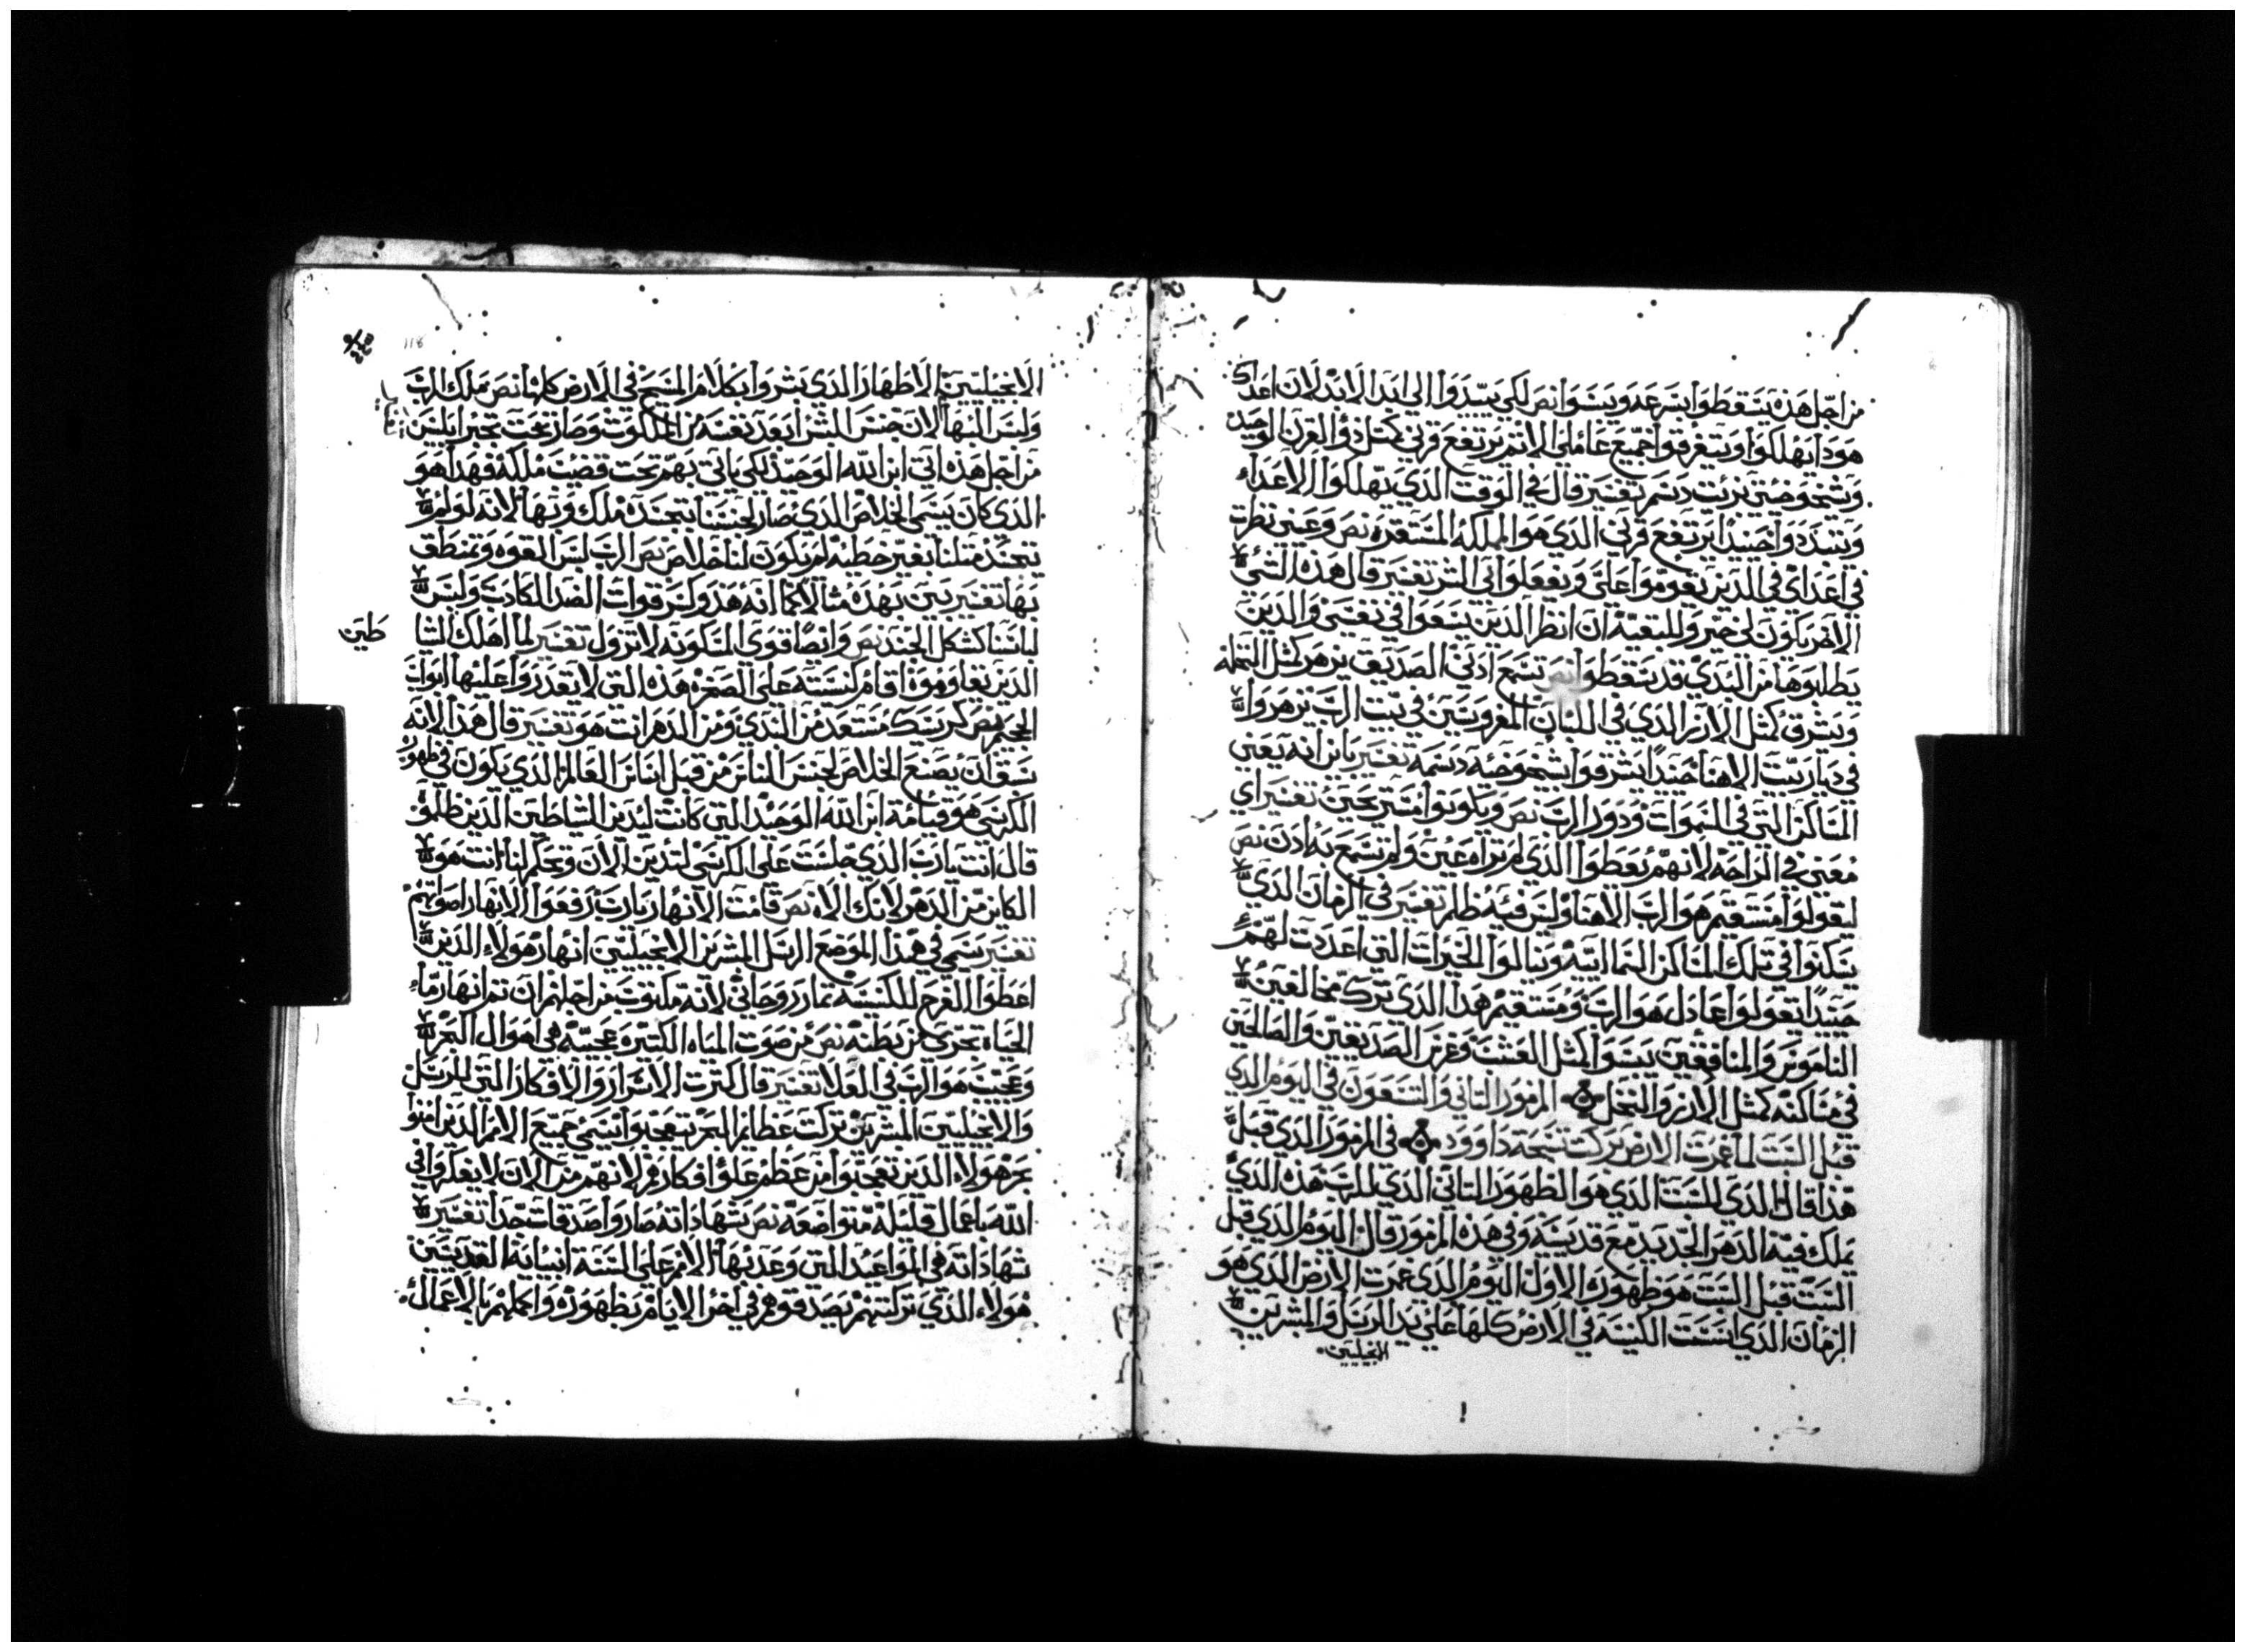 من اجل هذن يتسقطوا بسرعه ويبسوا نص لكي يبيدوا الي ابد الابد لان اعداك
هودا يهلكوا ويتفرقوا جميع عاملي الاتم يرتفع قرني كمتل ذو القرن الوحيد
وشيخوختي بزيت دسم تفسير قال في الوقت الذي يهلكوا الاعداء
ويتبددوا حينيدا يرتفع قرني الذي هو المملكه المستقره نص وعيني نظرت
في اعداي في الدين يقوموا علي ويفعلوا بي الشر تفسير قال هذه التي
الاخر ياكون لي خبر وللبقيه ان انظر الدين يبتغوا في نفسي والدين
يطلبوها من البدي قد سقطوا نص تسمع ادني الصديق يزهر كمتل النخله
ويشرق كمتل الارز الذي في اللبنان المغروسين في بيت الرب يزهروا
في ديار بيت الاهنا حينيدا يشرقوا بشيخوخه دسمه تفسير يابن انه يعني
المساكن التي في السموات ودور الرب نص ويكونوا مستريحين تفسير اي
معني في الراحه لانهم يعطوا الذي لم تراه عين ولم تسمع به ادن نص
ليقولوا مستقيم هو الرب الاهنا وليس فيه ظلم تفسير في الزمان الذي
يسكنوا في تلك المساكن السماييه وينالوا الخيرات التي اعدت لهم
حينيدا يقولوا عادل هو الرب ومستقيم هذا الذي ترك مخالفين
الناموس والمنافقين يبسوا كمتل العشب وغرس الصديقين والصالحين
في مساكنه كمتل الارز والنخل المزمور التاني والتسعون في اليوم الدي
قبل السبت لما عمرت الارض بركت تسبحة داوود في المزمور الذي قبل
هذا قال الذي للسبت الذي هو الظهور التاني الذي للرب هذن الذي
يملك فيه الدهر الجديد مع قديسيه وفي هذه المزمور قال اليوم الذي قبل
السبت قبل السبت هو ظهوره الاول اليوم الذي عمرت الارض الذي هو
الزمان الذي اتسست الكنيسه في الارض كلها علي يد الرسل والمبشرين
الانجيليين
118
الانجيليين الاطهار الدي بشروا بكلام المسيح في الارض كلها نص ملك الرب
ولبس البها لان جنس البشر ابعد نفسه من الملكوت وصار تحت تجبر ابليس
من اجل هذه اتي ابن الله الوحيد لكي ياتي بهم تحت قضيب ملكه فهدا هو
الذي كان يسمي الخلاص الدي صار لجنسنا بتجسده ملك وبها لانه لو لم
يتجسد متلنا بغير خطيه لم يكون لنا خلاص نص الرب لبس القوه وتمنطق
بها تفسير بين بهذه متالا كما انه هذ وكسر قوات الضد الكادب ولبس
لباسنا كشكل الجند نص وايضا قوي المسكونه لا تزول تفسير لما اهلك الشيا
طين
الدين تعاوموه اقام كنيسته علي الصخره هذه التي لا تقدروا عليها ابواب
الجحيم نص كرسيك مستعد من البدي ومن الدهر انت هو تفسير قال هذا لانه
سبق ان يصنع الخلاص لجنس الناس من قبل اساس العالم الذي يكون في ظهور
الكرسي هو قيامة ابن الله الوحيد التي كانت ليدين الشياطين الدين ظلموا
قال انت يارب الذي جلست علي الكرسي لتدين الان وتحكم لنا انت هو
الكاين من الدهر لانك الاه نص قامت الانهار يارب رفعوا الانهار اصواتهم
تفسير يسمي في هذا الموضع الرسل المبشرين الانجيليين انهار هولاء الدين
اعطوا الفرح للكنيسه تمار روحاني لانه مكتوب من اجلهم ان تم انهار ماء
الحياه تجري من بطنه نص من صوت المياه الكتيره عجيبه هي اهوال البحر
وعجيب هو الرب في العلا تفسير قال كترت الاسرار والافكار التي للرسل
والانجيليين المبشرين تركت عظايم البحر يتعجبوا يسمي جميع الامم الدين امنوا
بحر هولاء الدين تعجبوا من عظم علو افكارهم لانهم من الان لا يفكروا في
الله باعمال قليله متواضعه نص شهاداته صاروا صدقات جدا تفسير
شهاداته هي المواعيد التي وعد بها الامم علي السنة انبيايه القديسين
هولاء الذي تركتهم يصدقوهم في اخر الايام بظهوره واكملهم بالاعمال